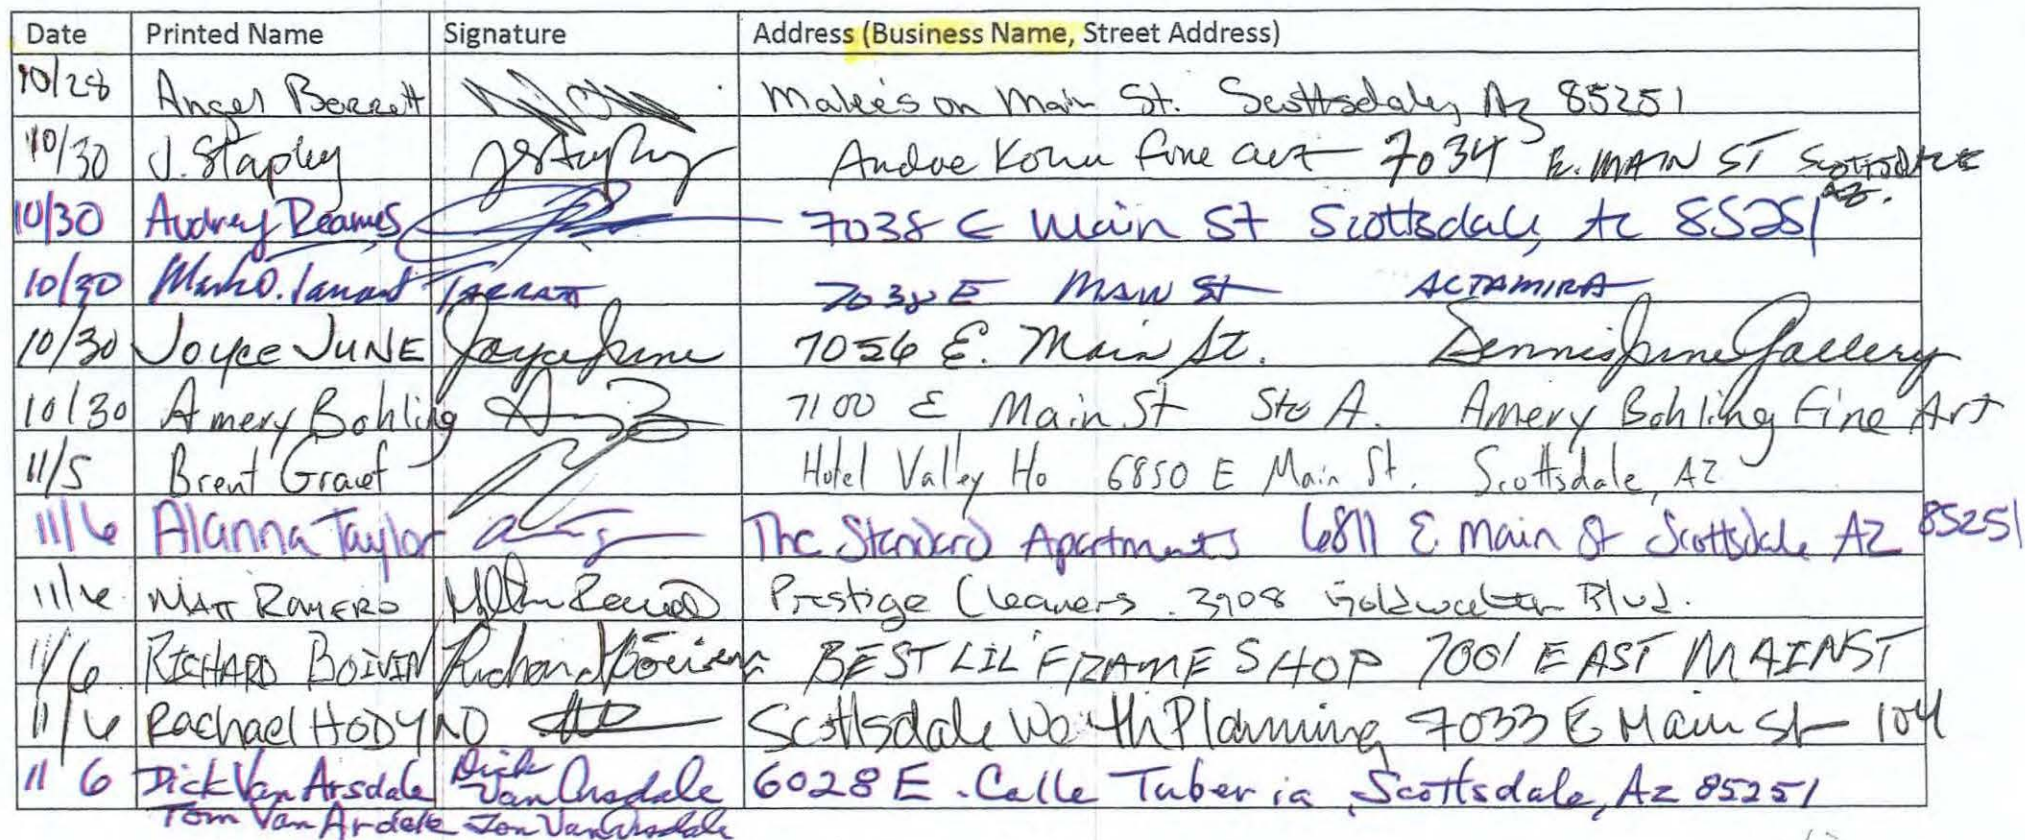 Date Printed Name Signature Address (Business Name, Street Address)
10/28 Angel Berrett Malee's on Main St. Scottsdale, Az 85251
10/30 J. Stapley JStapley Andre Kohn fine art 7034 E. MAIN ST Scottsdale AZ.
10/30 Audrey Deames 7038 E Main St Scottsdale, Az 85251
10/30 Mark D. Tarrant TARRANT 7038 E MAIN St ALTAMIRA
10/30 Joyce JUNE Joyce June 7056 E. Main St. Dennis June Gallery
10/30 Amery Bohling 7100 E Main St Ste A. Amery Bohling Fine Art
11/5 Brent Graef Hotel Valley Ho 6850 E Main St. Scottsdale, AZ
11/6 Alanna Taylor The Standard Apartments 6811 E Main St Scottsdale AZ 85251
11/6 MATT ROMERO Prestige Cleaners. 3908 Goldwater Blvd.
11/6 RICHARD BOIVIN Richard Boivin BEST LIL' FRAME SHOP 7001 EAST MAIN ST
11/6 Rachael HODYNO Scottsdale Wealth Planning 7033 E Main St 104
11 6 Dick Van Arsdale Dick Van Arsdale 6028 E. Calle Tuberia, Scottsdale, Az 85251
Tom Van Ardale Tom VanArsdale